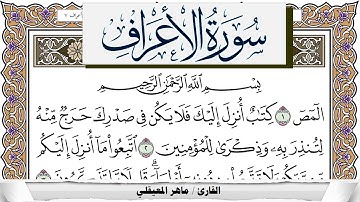 سُورَةُ الأَعْرَافِ
بِسْمِ اللَّهِ الرَّحْمَٰنِ الرَّحِيمِ
الٓمٓصٓ ١ كِتَٰبٌ أُنزِلَ إِلَيْكَ فَلَا يَكُن فِى صَدْرِكَ حَرَجٌ مِّنْهُ
لِتُنذِرَ بِهِۦ وَذِكْرَىٰ لِلْمُؤْمِنِينَ ٢ ٱتَّبِعُوا۟ مَآ أُنزِلَ إِلَيْكُم
القارئ / ماهر المعيقلي